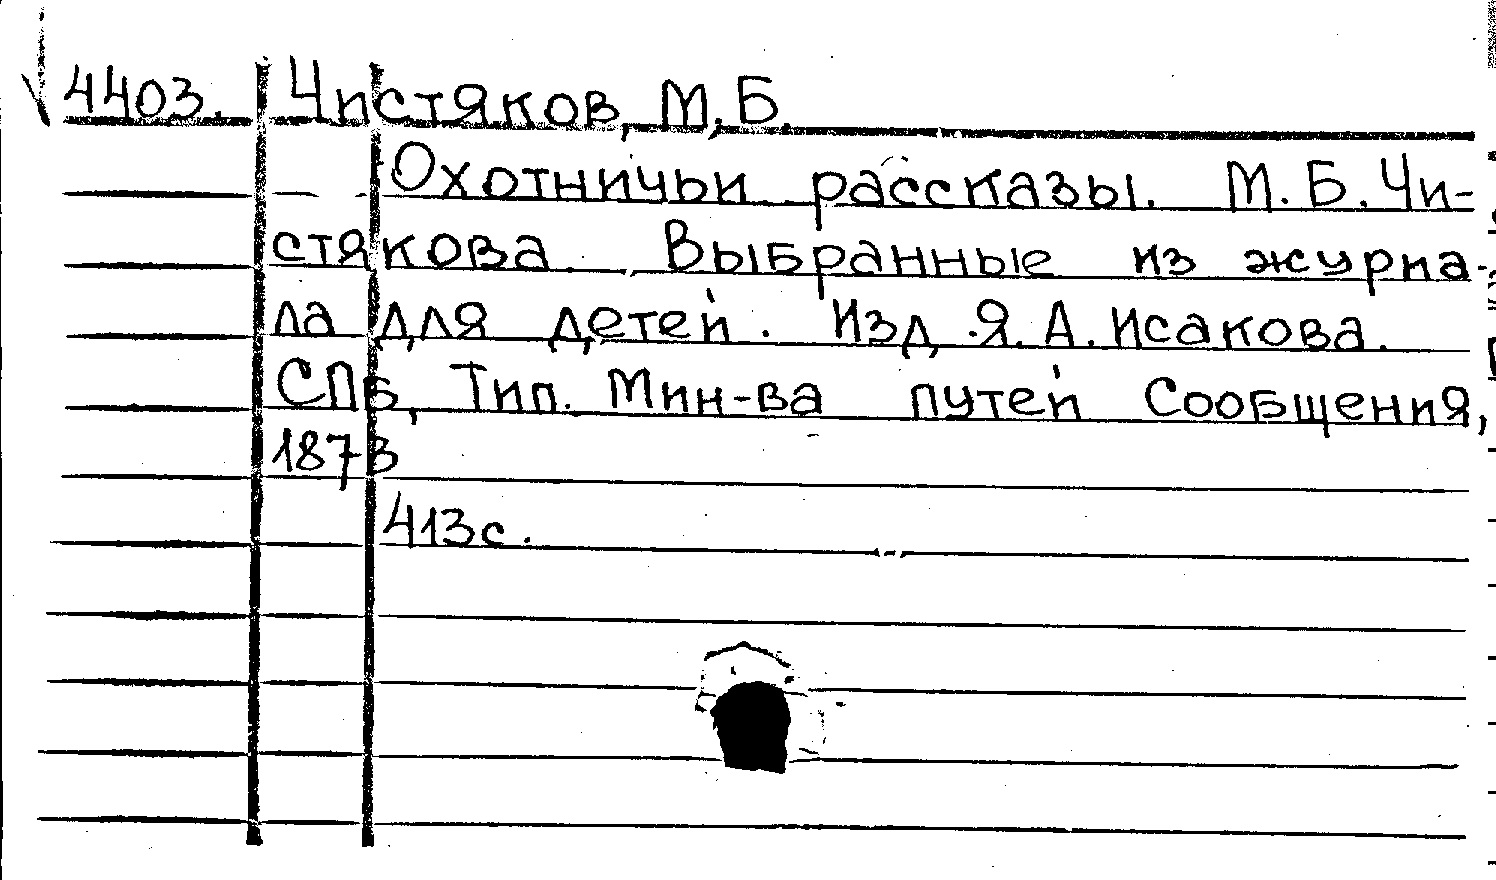 4403. Чистяков, М.Б.
Охотничьи рассказы. М.Б. Чи-
стякова. Выбранные из журна-
ла для детей. Изд. Я.А. Исакова.
СПб, Тип. Мин-ва путей Сообщения,
1873
413с.